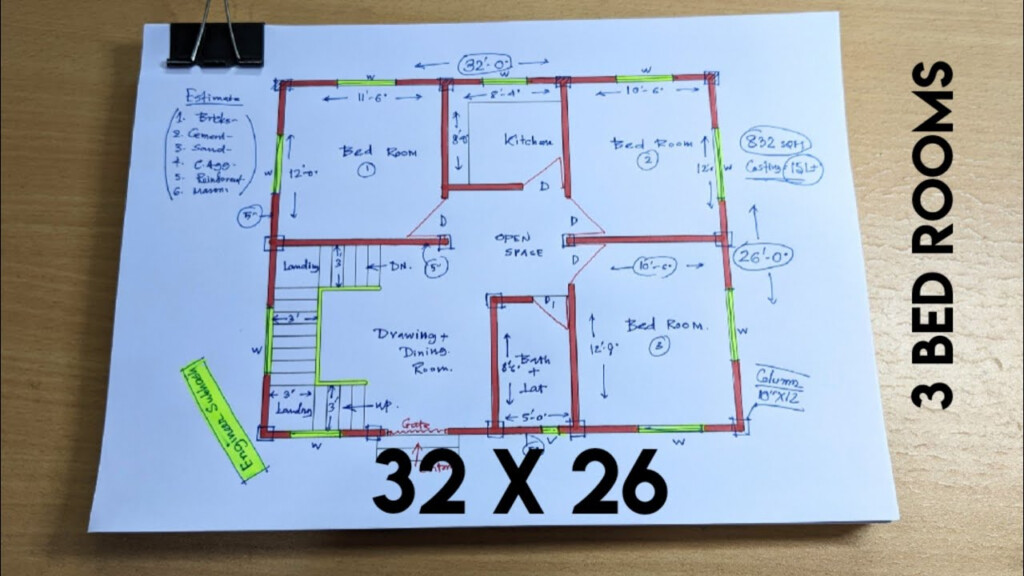 32'-0"
W
W
W
11'-6"
8'-4"
10'-6"
Estimate
1. Bricks-
2. Cement-
3. Sand-
4. C.Agg-
5.
6. Mason
Bed Room
1
12'-0"
W
5"
8'-0"
Kitchen
D
D
D
Bed Room
2
12'
W
832 sqft
Costing 15L+
OPEN
SPACE
D
5"
Landing
3'
DN.
10'-6"
26'-0"
3'
W
Drawing +
Dining
Room.
D1
Bath
+
Lat
5'-0"
Bed Room.
3
12'-0"
W
Column
10"X12
3'
Landing
3'
UP.
W
Gate
W
W
Engineer Subhash
32 X 26
3 BED ROOMS